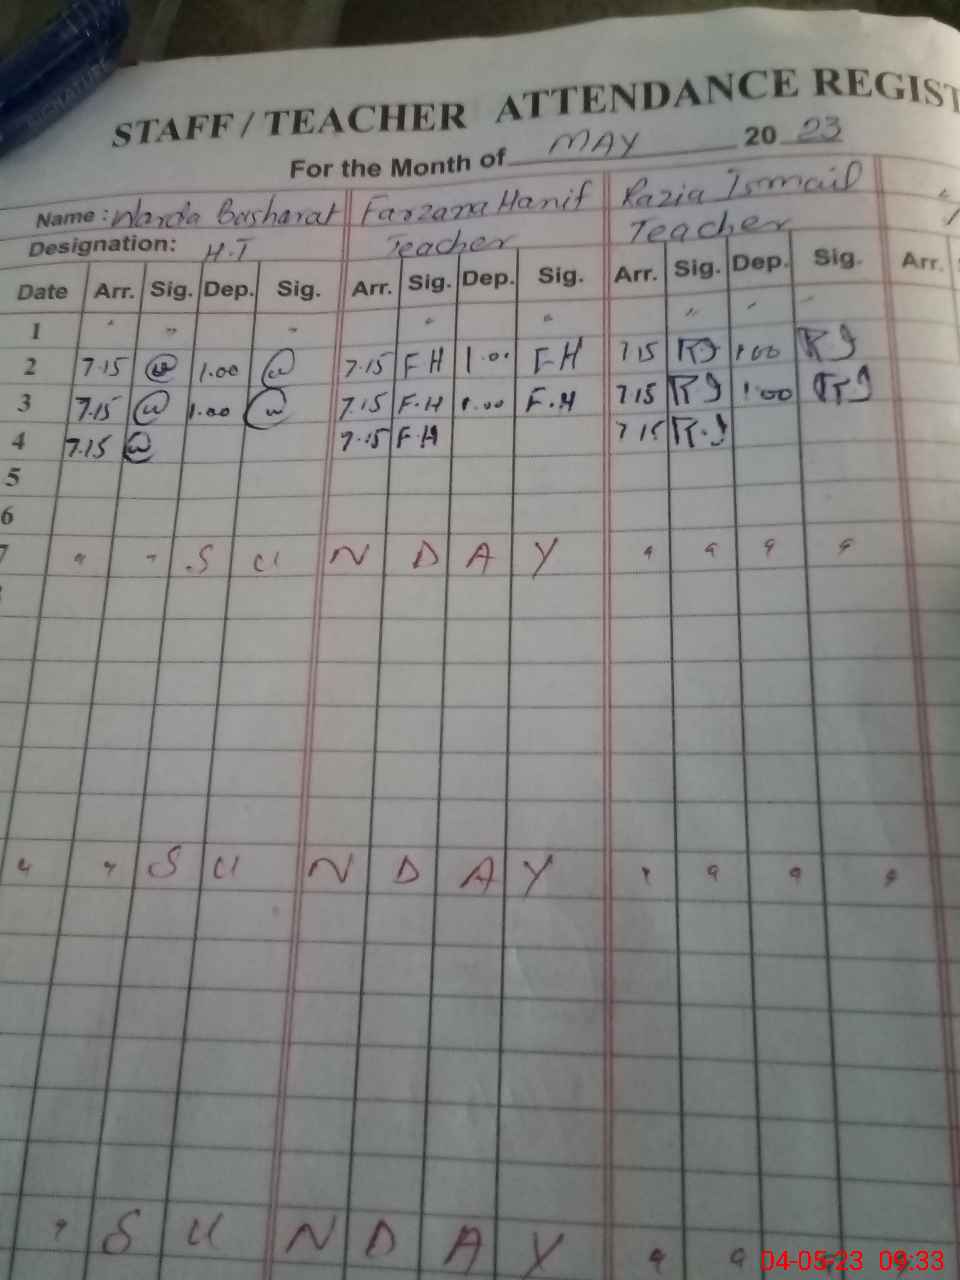 SIGNATURE
STAFF / TEACHER ATTENDANCE REGIST
For the Month of MAY 20 23
Name : Warda Basharat Farzana Hanif Razia Ismail
Designation: H.T Teacher Teacher
Date Arr. Sig. Dep. Sig. Arr. Sig. Dep. Sig. Arr. Sig. Dep. Sig. Arr.
1 " " " " " " " "
2 7.15 W 1.00 W 7.15 F H 1.00 F H 7 15 R I 1.00 R I
3 7.15 W 1.00 W 7.15 F.H 1.00 F.H 7 15 R I 1.00 R I
4 7.15 W 7.15 F.H 7 15 R.I
5
6
7 " " S U N D A Y " " " "
" " S U N D A Y " " " "
" S U N D A Y " " " "
04-05-23 09:33